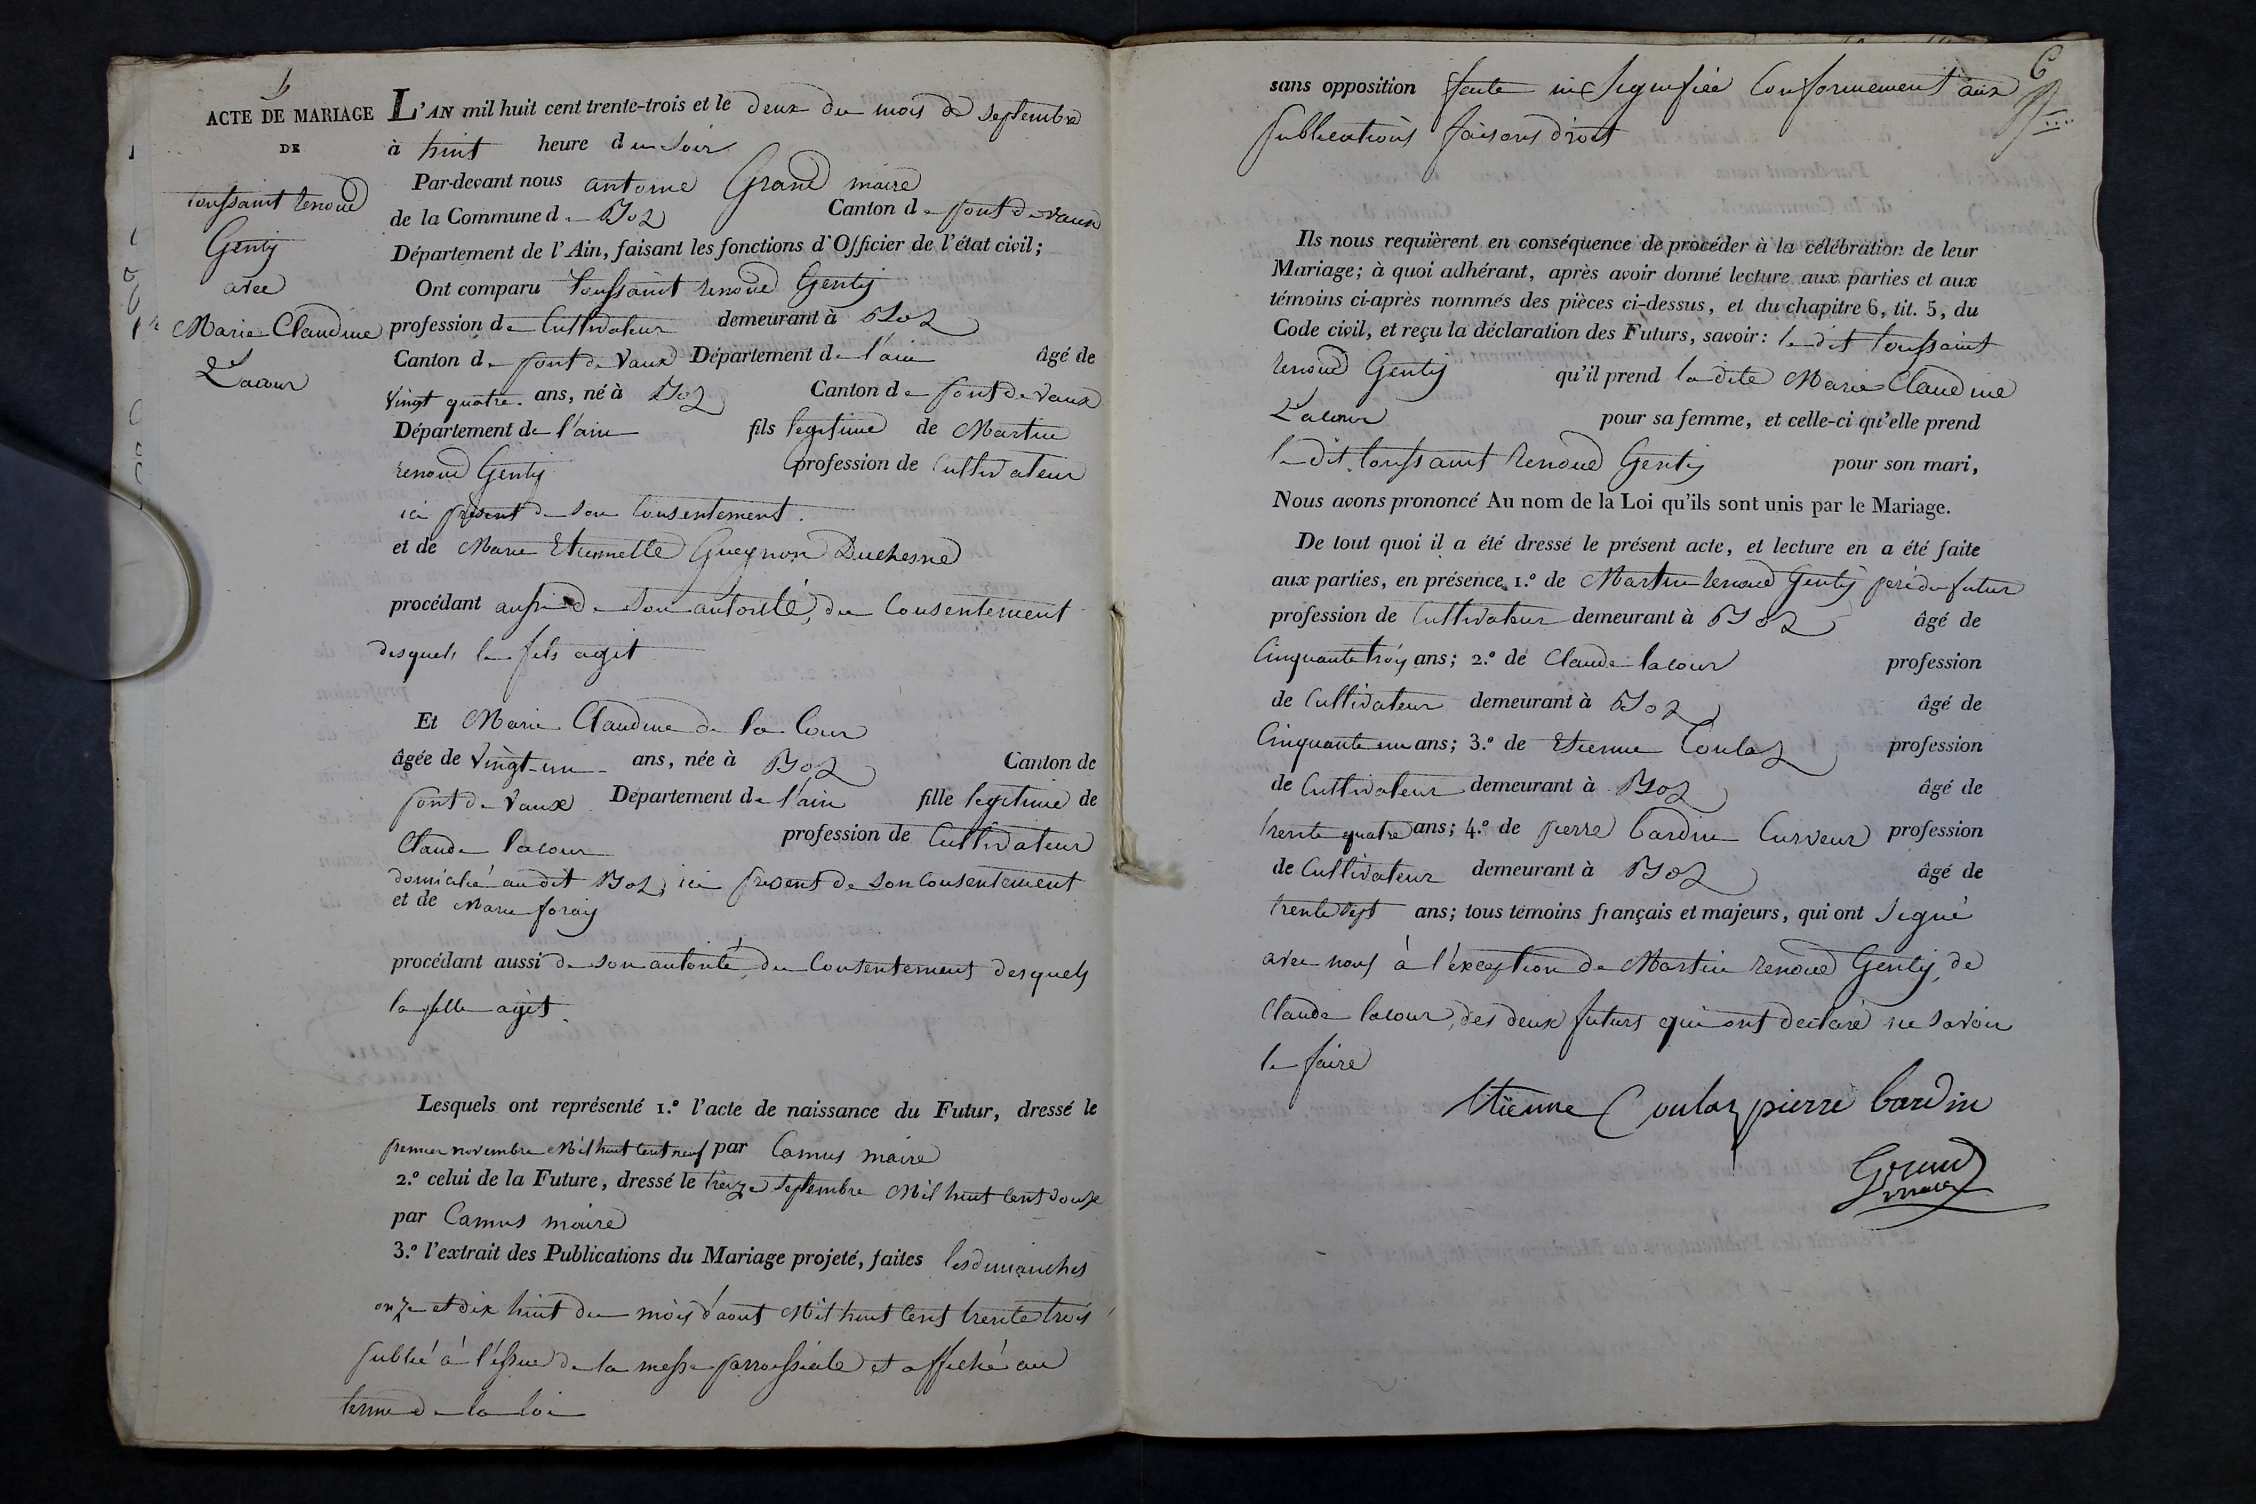 6
ACTE DE MARIAGE
DE
toussaint renoud
Gentÿ
avec
Marie Claudine
Lacour
L'AN mil huit cent trente-trois et le deux du mois de septembre
à huit heure du soir
Par-devant nous antoine Grand maire
de la Commune de Boz Canton de pont de vaux
Département de l'Ain, faisant les fonctions d'Officier de l'état civil;
Ont comparu toussaint renoud Gentÿ
profession de Cultivateur demeurant à Boz
Canton de pont de vaux Département de l'ain âgé de
vingt quatre ans, né à Boz Canton de pont de vaux
Département de l'ain fils legitime de Martin
renoud Gentÿ profession de Cultivateur
ici présent de son Consentement.
et de Marie Etiennette Gueynon Duchesne
procédant aussi de son autorité, du Consentement
desquels le fils agit
Et Marie Claudine de la Cour
âgée de vingt-un ans, née à Boz Canton de
pont de vaux Département de l'ain fille legitime de
Claude lacour profession de Cultivateur
domicilié audit Boz, ici présent de son Consentement
et de Marie foraÿ
procédant aussi de son autorité, du Consentement desquels
la fille agit.
Lesquels ont représenté 1.º l'acte de naissance du Futur, dressé le
premier novembre Mil huit Cent neuf par Camus maire
2.º celui de la Future, dressé le treize septembre Mil huit Cent douze
par Camus maire
3.º l'extrait des Publications du Mariage projeté, faites les dimanches
onze et dix huit du mois d'aout Mil huit Cent trente trois
publié à l'issue de la messe parroissiale et affiché au
terme de la loi
6
sans opposition faite ni signifiée Conformement aux
publications faisons droit
Ils nous requièrent en conséquence de procéder à la célébration de leur
Mariage; à quoi adhérant, après avoir donné lecture aux parties et aux
témoins ci-après nommés des pièces ci-dessus, et du chapitre 6, tit. 5, du
Code civil, et reçu la déclaration des Futurs, savoir: le dit toussaint
renoud Gentÿ qu'il prend la dite Marie Claudine
Lacour pour sa femme, et celle-ci qu'elle prend
le dit toussaint renoud Gentÿ pour son mari,
Nous avons prononcé Au nom de la Loi qu'ils sont unis par le Mariage.
De tout quoi il a été dressé le présent acte, et lecture en a été faite
aux parties, en présence 1.º de Martin renoud Gentÿ père du futur
profession de Cultivateur demeurant à Boz âgé de
Cinquante troÿ ans; 2.º de Claude lacour profession
de Cultivateur demeurant à Boz âgé de
Cinquante un ans; 3.º de Etienne Coulaz profession
de Cultivateur demeurant à Boz âgé de
trente quatre ans; 4.º de pierre bardin Curveur profession
de Cultivateur demeurant à Boz âgé de
trente sept ans; tous témoins français et majeurs, qui ont signé
avec nous à l'exception de Martin renoud Gentÿ, de
Claude lacour, des deux futurs qui ont déclaré ne savoir
le faire
Etienne Coulaz pierre bardin
Grand
maire